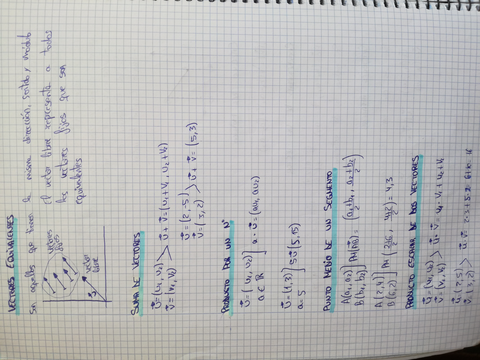 VECTORES EQUIVALENTES
Son aquellos que tienen la misma dirección, sentido y módulo
El vector libre representa a todos
los vectores fijos que son
equivalentes
vectores
fijos
vector
libre
SUMA DE VECTORES
u = (u₁, u₂)
v = (v₁, v₂) > u + v = (u₁ + v₁, u₂ + v₂)
v = (3, 2) > u + v = (5, 3)
PRODUCTO POR UN Nº
u = (u₁, u₂)
a ∈ R ] a · u = (au₁, au₂)
a = 5
PUNTO MEDIO DE UN SEGMENTO
A(a₁, a₂)
B(b₁, b₂)
A(2, 4)
B(6, 2)
PRODUCTO ESCALAR DE DOS VECTORES
u = (u₁, u₂)
v = (v₁, v₂) > u · v = u₁ · v₁ + u₂ · v₂
u (2, 5)
v (3, 2)